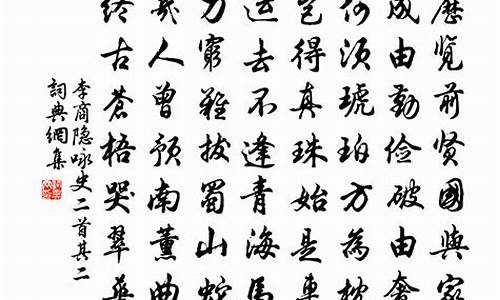 歷覽前賢國與家
成由勤儉破由奢
何須琥珀方為枕
豈得真珠始是車
運去不逢青海馬
力窮難拔蜀山蛇
幾人曾預南薰曲
終古蒼梧哭翠華
李商隐詠史二首其二
詞典網集